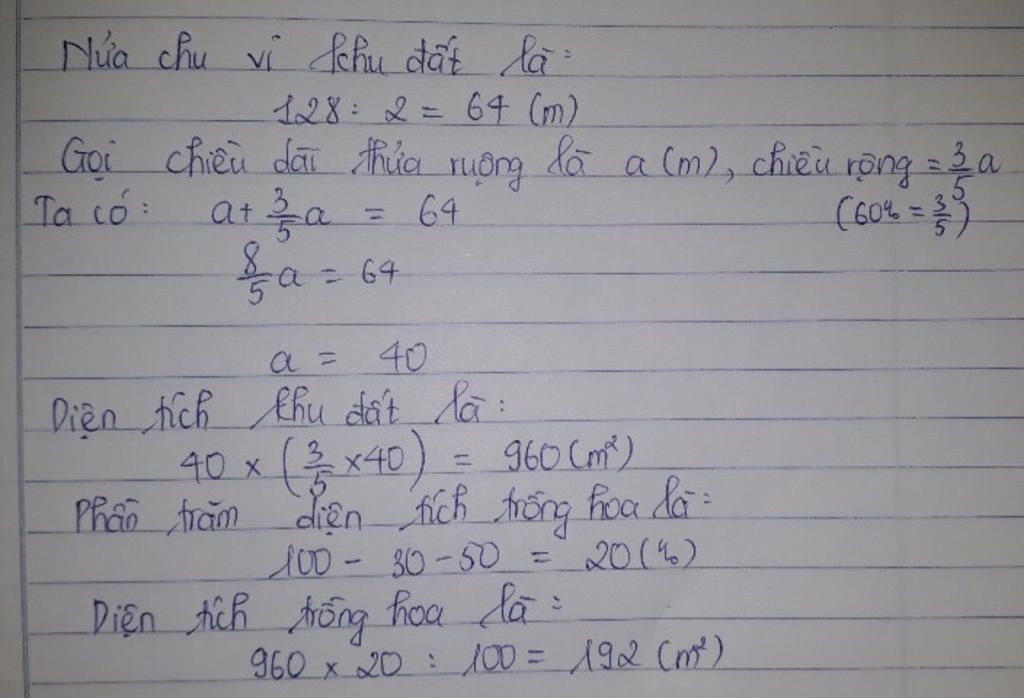 Nửa chu vi khu đất là:
128 : 2 = 64 (m)
Gọi chiều dài thửa ruộng là a (m), chiều rộng = 3/5 a
Ta có: a + 3/5 a = 64 (60% = 3/5)
8/5 a = 64
a = 40
Diện tích khu đất là:
40 x (3/5 x 40) = 960 (m²)
Phần trăm diện tích trồng hoa là:
100 - 30 - 50 = 20 (%)
Diện tích trồng hoa là:
960 x 20 : 100 = 192 (m²)